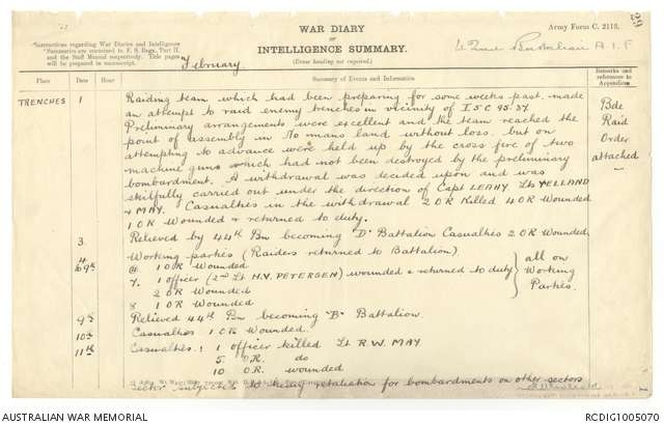 29
WAR DIARY
OR
INTELLIGENCE SUMMARY.
(Erase heading not required.)
Army Form C. 2118.
Instructions regarding War Diaries and Intelligence
Summaries are contained in F. S. Regs., Part II.
and the Staff Manual respectively. Title pages
will be prepared in manuscript.
Battalion A.I.F
February
Place Date Hour Summary of Events and Information Remarks and references to Appendices
TRENCHES 1 Raiding team which had been preparing for some weeks past, made
an attempt to raid enemy trenches in vicinity of I 5 C 95.37
Preliminary arrangements were excellent and the team reached the
point of assembly in No mans land without loss, but on
attempting to advance were held up by the cross fire of two
machine guns which had not been destroyed by the preliminary
bombardment. A withdrawal was decided upon and was
skilfully carried out under the direction of Capt LEAHY, Lts YELLAND
& MAY. Casualties in the withdrawal 2 OR Killed 4 OR Wounded
1 OR Wounded & returned to duty.
Bde
Raid
Order
attached
—
3. Relieved by 44th Bn becoming "D" Battalion Casualties 2 OR Wounded
4 to 9th Working parties (Raiders returned to Battalion)
1 OR Wounded
7. 1 officer (2nd Lt H.V. PETERSEN) wounded & returned to duty
2 OR Wounded
8 1 OR Wounded
all on
Working
Parties.
9th Relieved 44th Bn becoming "B" Battalion.
10th Casualties 1 OR Wounded.
11th Casualties: 1 officer killed Lt R.W. MAY
5 OR. do
10 OR. wounded
Sector subjected to heavy retaliation for bombardments on other sectors
AUSTRALIAN WAR MEMORIAL
RCDIG1005070